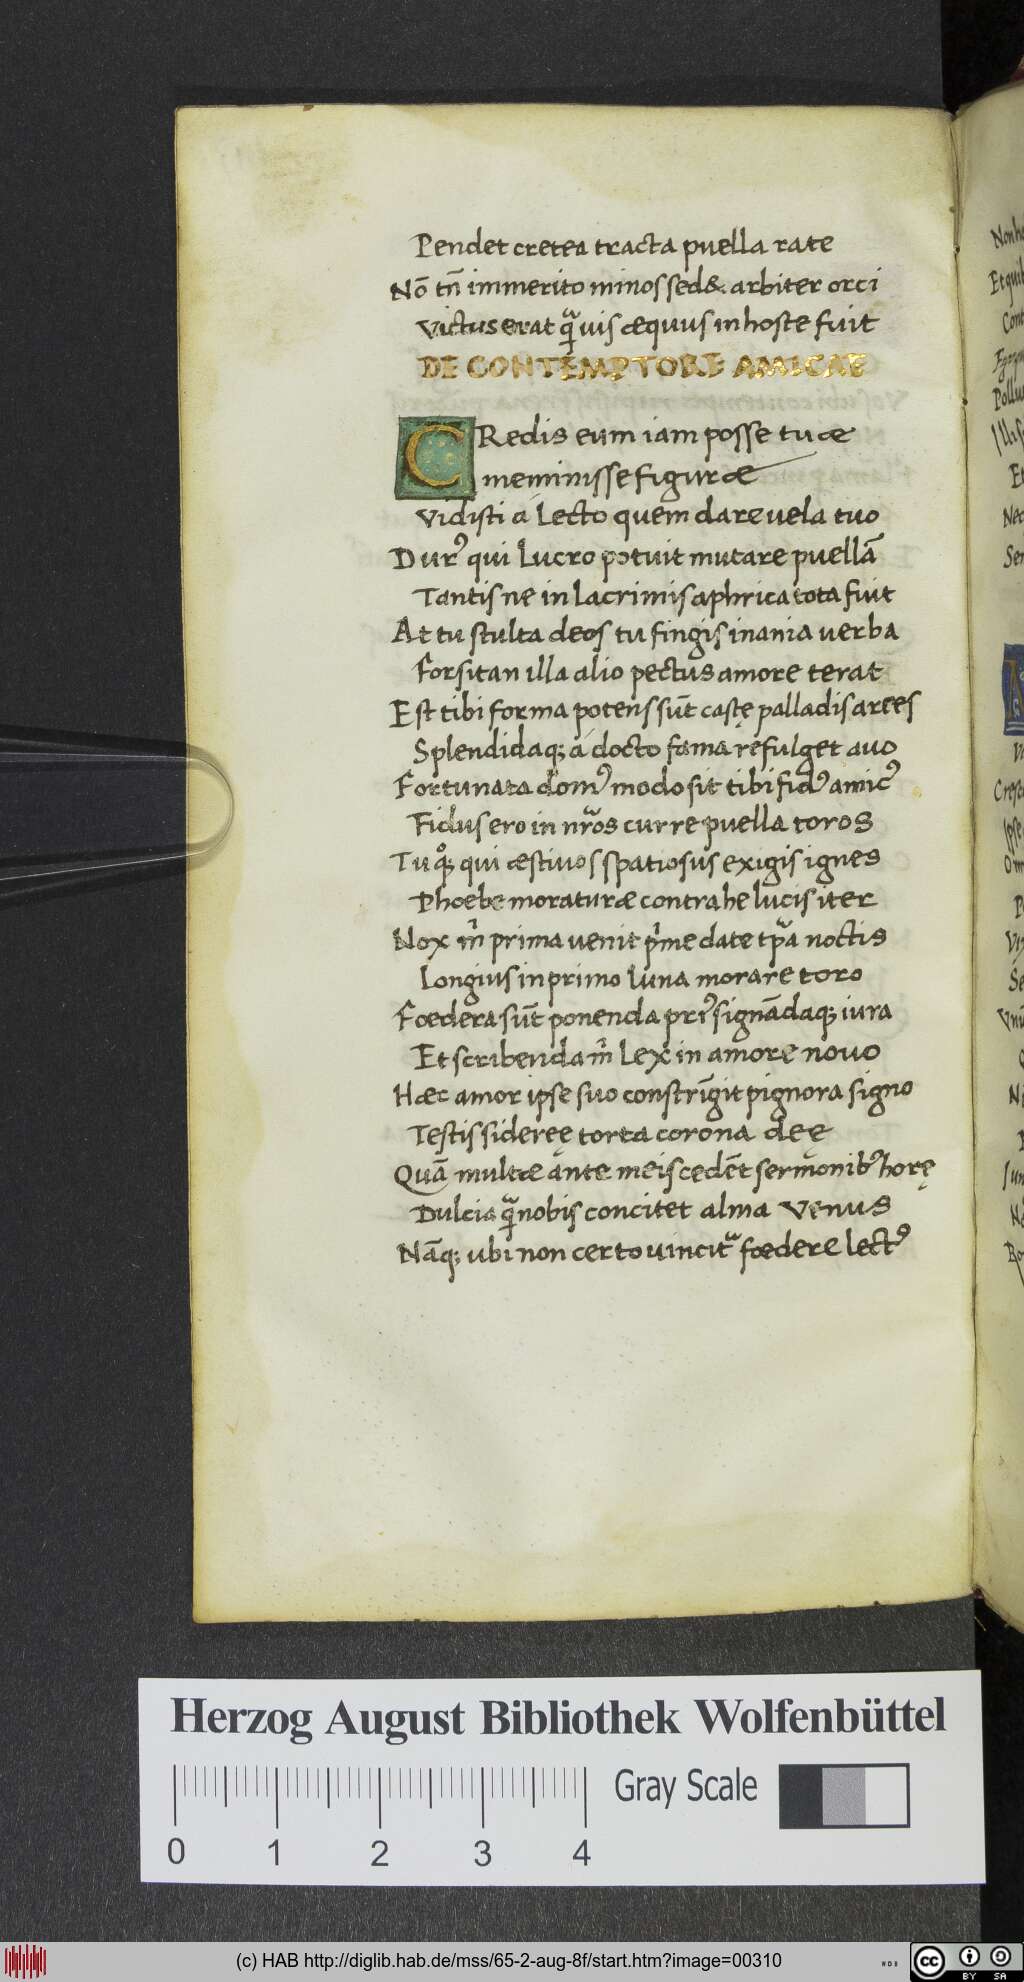 Pendet cretea tracta puella rate
Nō tn̄ immerito minos sed&. arbiter orci
Victus erat qͣuis æquus in hoste fuit
DE CONTEMPTORE AMICAE
CRedis eum iam posse tuæ
meminisse figuræ
Vidisti á lecto quem dare uela tuo
Durꝰ qui lucro potuit mutare puellā
Tantis ne in lacrimis aphrica tota fuit
At tu stulta deos tu fingis inania uerba
Forsitan illa alio pectus amore terat
Est tibi forma potens sūt castę palladis arces
Splendidaq; á docto fama refulget auo
Fortunata domꝰ modo sit tibi fidꝰ amicꝰ
Fidus ero in nr̄os curre puella toros
Tu qͦ; qui æstiuos spatiosus exigis ignes
Phoebe moraturæ contrahe lucis iter
Nox m̄ prima uenit pͥme date tpͣa noctis
Longius in primo luna morare toro
Foedera sūt ponenda priꝰ signādaq; iura
Et scribenda m̄ lex in amore nouo
Hæc amor ipse suo constrīgit pignora signo
Testis sidereę torta corona deę
Quā multæ ante meis cedēt sermonibꝰ horę
Dulcia qͣ nobis concitet alma Venus
Nāq; ubi non certo uincitͬ foedere lectꝰ
Herzog August Bibliothek Wolfenbüttel
Gray Scale
0 1 2 3 4
(c) HAB http://diglib.hab.de/mss/65-2-aug-8f/start.htm?image=00310
cc BY SA